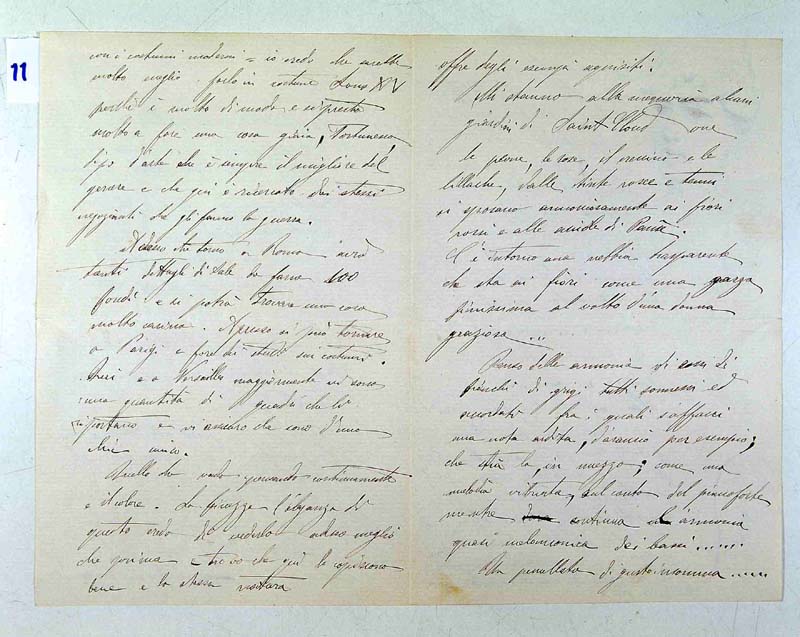 11
con i costumi moderni = io credo che sarebbe
molto meglio farlo in costume Louis XV
perchè è molto di moda e si presta
molto a fare una cosa gaia,
tipo d'arte che è sempre il migliore del
genere e che qui è ricercato dai stessi
negozianti che gli fanno la guerra.
Adesso che torno a Roma avrò
tanti dettagli di Sale da farne 100
e si potrà trovare una cosa
molto carina. si può tornare
a Parigi e fare dei studi sui costumi.
e a Versailles maggiormente vi sono
una quantità di quadri che li
riportano e vi assicuro che sono d'uno
chic unico.
Quello che vado provando continuamente
è il colore. La finezza l'eleganza di
questo credo di vederlo adesso meglio
che prima e trovo che qui lo capiscono
bene e la stessa natura
offre degli esempi squisiti.
Mi stanno alla memoria alcuni
giardini di Saint Cloud ove
le peonie, le rose, il e le
lillache, dalle tinte rosee e tenui
si sposano armoniosamente ai fiori
rossi e alle aiuole di
C'è intorno una nebbia trasparente
che sta ai fiori come una garza
finissima al volto d'una donna
graziosa ....
delle armonie di di
bianchi di grigi tutti sommessi ed
accordati fra i quali s'affacci
una nota ardita, d'arancio per esempio;
che stia là, in mezzo, come una
melodia vibrata, sul canto del pianoforte
mentre continua l'armonia
quasi melanconica dei bassi ......
Un di gusto insomma ......